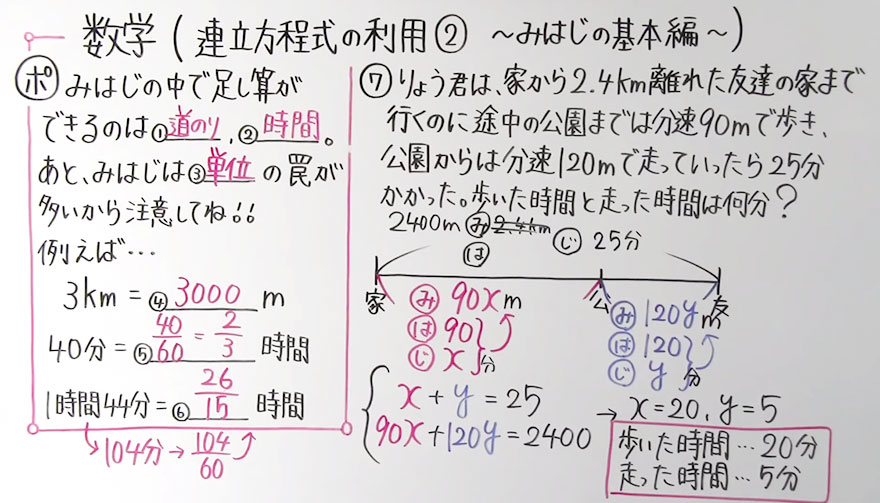 数学(連立方程式の利用② ～みはじの基本編～)
ポ みはじの中で足し算が
できるのは①道のり,②時間。
あと、みはじは③単位の罠が
多いから注意してね!!
例えば…
3km=④3000m
40分=⑤40/60=2/3時間
1時間44分=⑥26/15時間
↳104分→104/60
⑦りょう君は、家から2.4km離れた友達の家まで
行くのに途中の公園までは分速90mで歩き、
公園からは分速120mで走っていったら25分
かかった。歩いた時間と走った時間は何分?
2400m み 2.4km
は
じ 25分
家
公
友
み 90xm
は 90
じ x 分
み 120ym
は 120
じ y 分
x+y=25
90x+120y=2400
→x=20,y=5
歩いた時間…20分
走った時間…5分